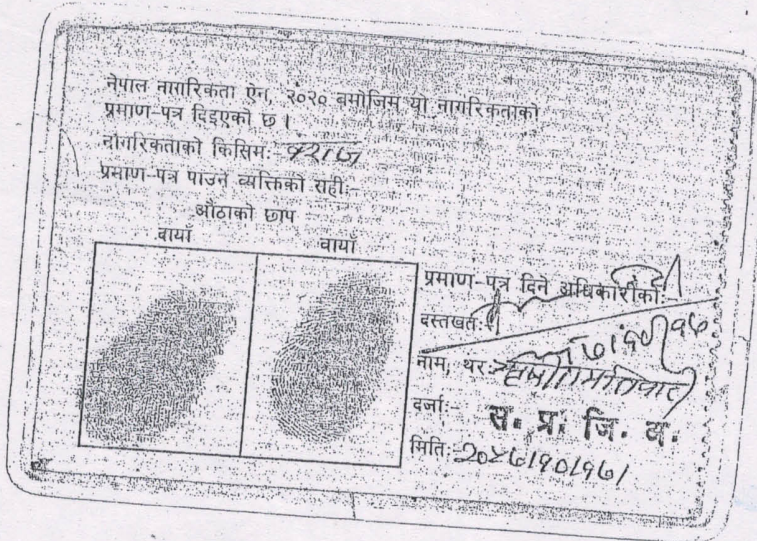 नेपाल नागरिकता ऐन, २०२० बमोजिम यो नागरिकताको
प्रमाण-पत्र दिइएको छ ।
नागरिकताको किसिम:- वंशज
प्रमाण-पत्र पाउने व्यक्तिको सही:-
औंठाको छाप
दायाँ बायाँ
प्रमाण-पत्र दिने अधिकारीको:-
दस्तखत:-
नाम, थर:-
दर्जा:- स. प्र. जि. अ.
मिति:- २०४७।१०।१७।